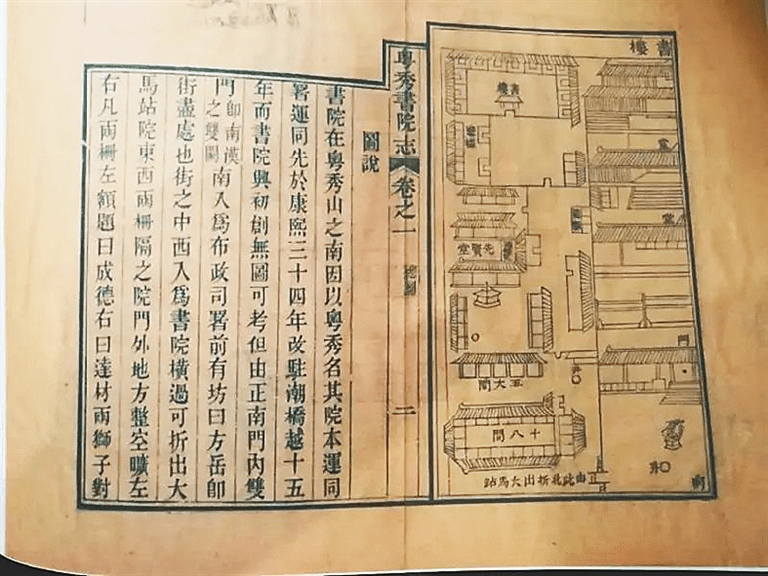 書樓
書樓
堂
堂
先賢堂
門
井
五大間
十八間
井
由此北折出大馬站
粵秀書院志
卷之一
總圖
二
圖說
書院在粵秀山之南因以粵秀名其院本運同
署運同先於康熙三十四年改駐潮橋越十五
年而書院興初創無圖可考但由正南門內雙
門即南漢之雙闕南入爲布政司署前有坊曰方岳即
街盡處也街之中西入爲書院橫過可折出大
馬站院東西兩柵隔之院門外地方整空曠左
右凡兩柵左額題曰成德右曰達材兩獅子對